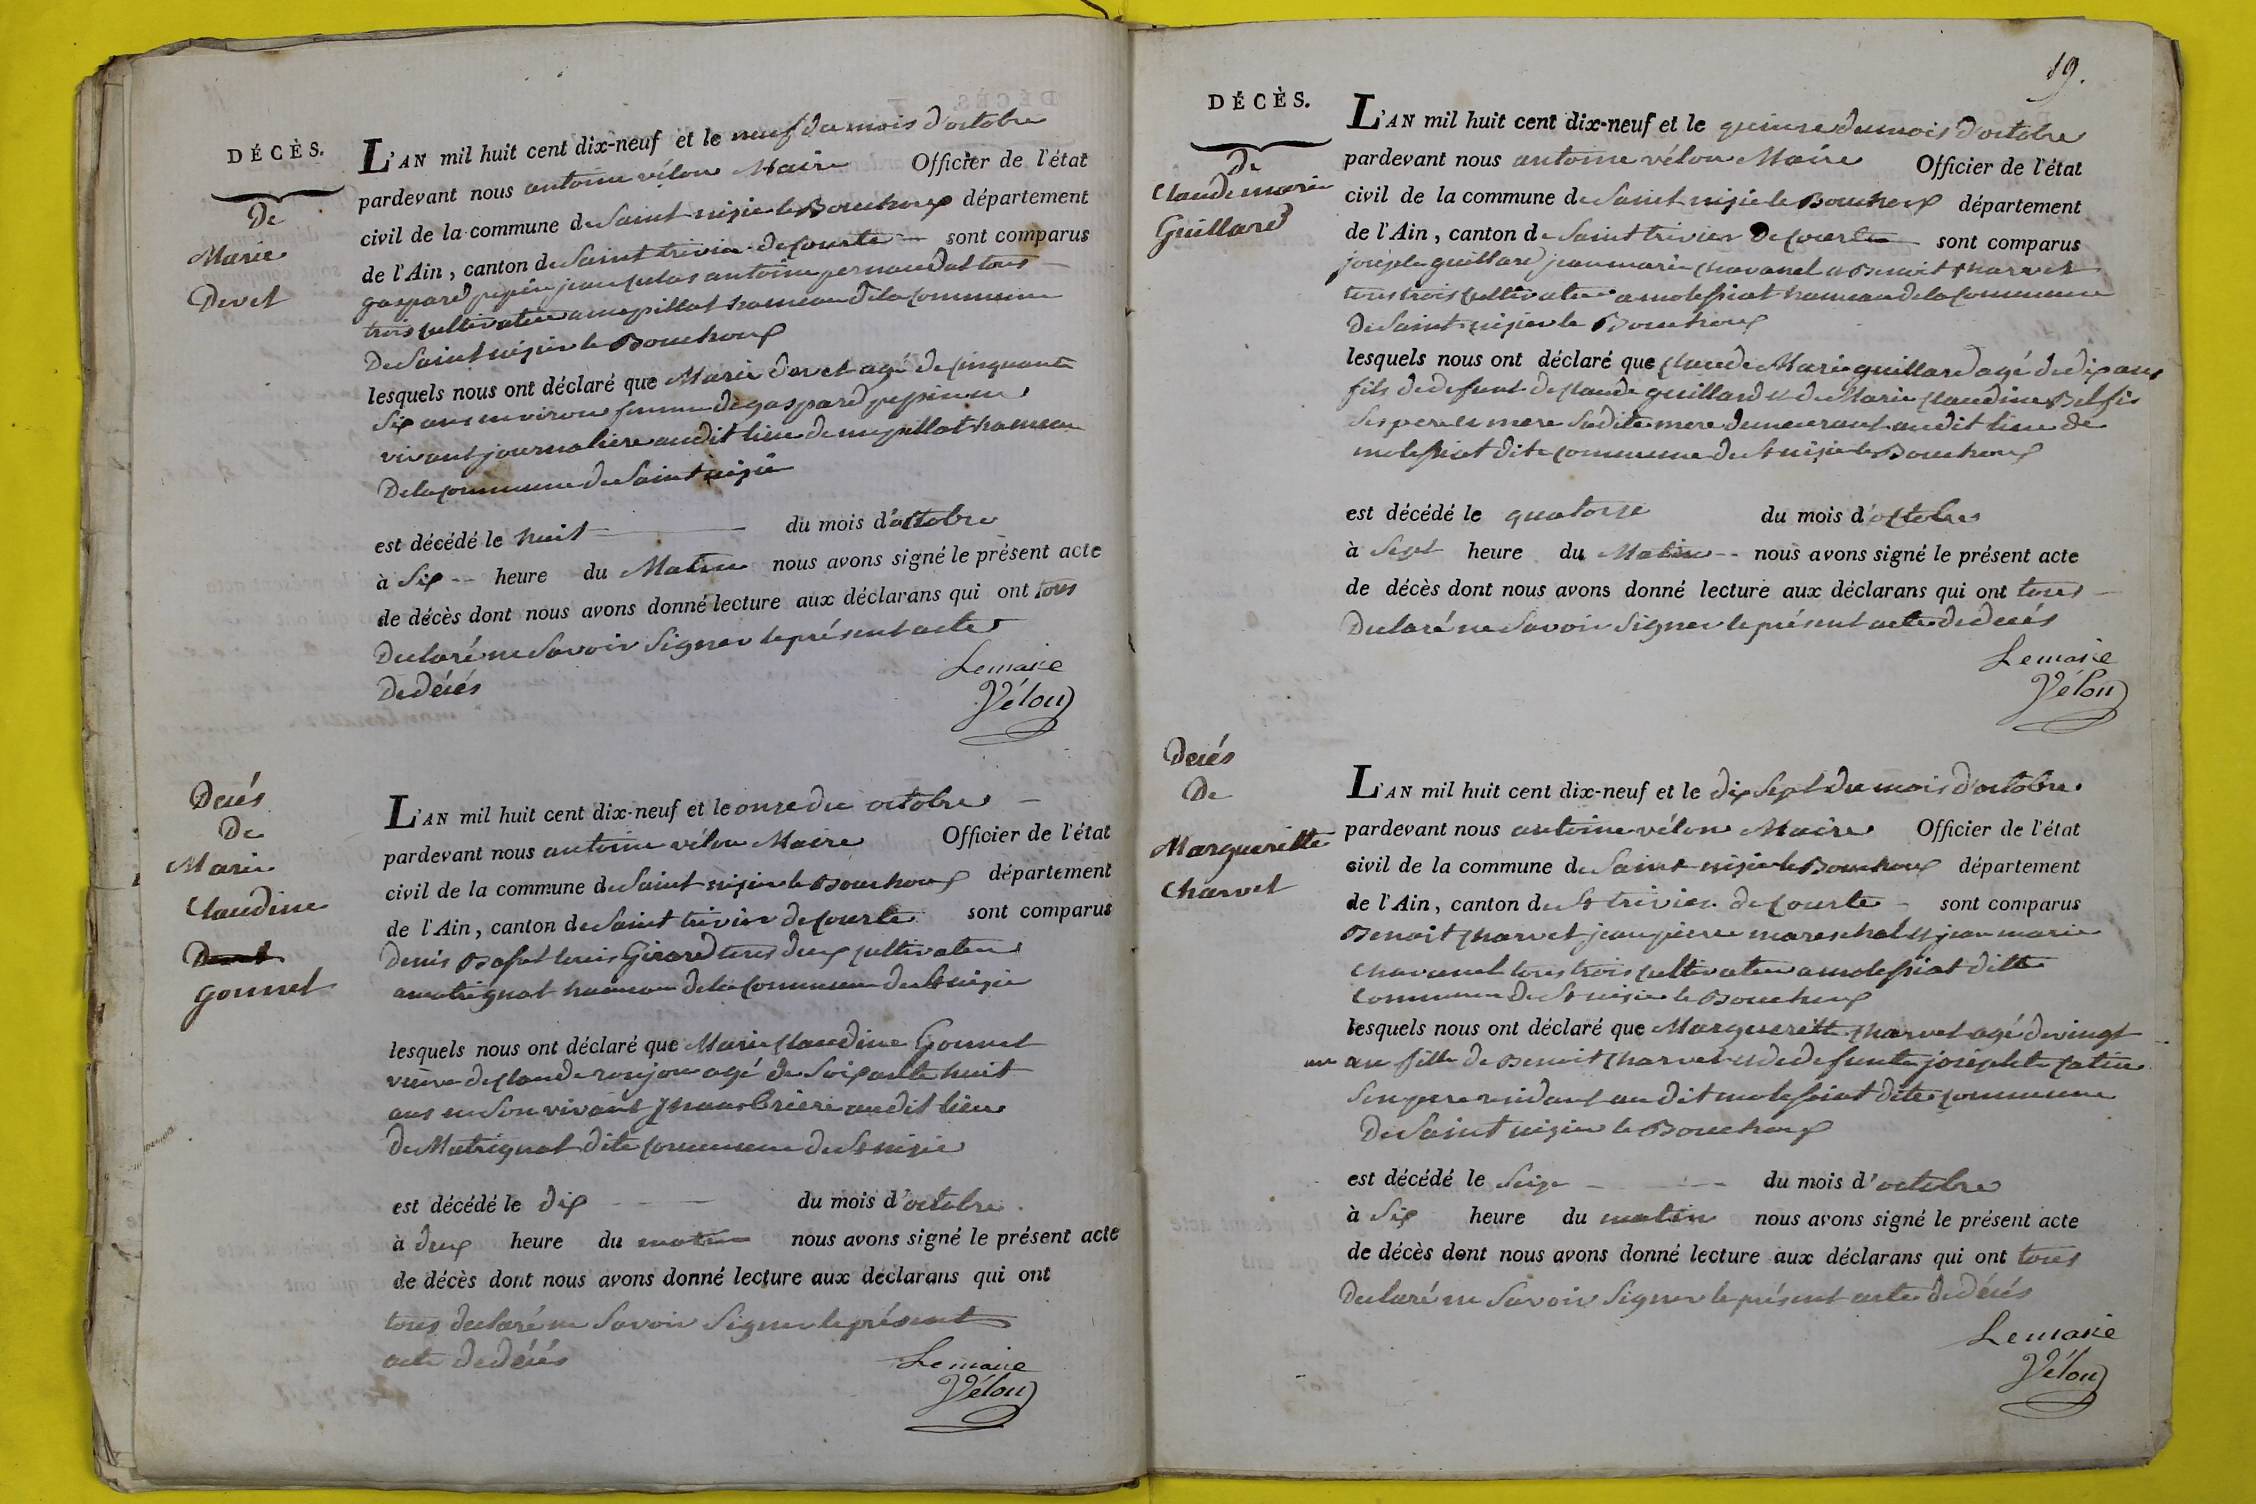 DÉCÈS.
De
Marie
Devet
L'AN mil huit cent dix-neuf et le neuf du mois d'octobre
pardevant nous antoine vélon Maire Officier de l'état
civil de la commune de Saint nizier le Bouchoux département
de l'Ain, canton de Saint trivier de Courte sont comparus
gaspard pepin jean antoine tous
trois cultivateur a hameau de la commune
De Saint nizier le Bouchoux
lesquels nous ont déclaré que Marie devet agé de cinquante
Six ans environ femme de gaspard pepin en
vivant journaliere audit lieu de hameau
De la commune de Saint nizie
est décédé le huit du mois d'octobre
à Six heure du Matin nous avons signé le présent acte
de décès dont nous avons donné lecture aux déclarans qui ont tous
Declaré ne Savoir Signer le présent acte
De décés
Lemaire
Vélon
Decés
De
Marie
Claudine
gonnet
L'AN mil huit cent dix-neuf et le onze du octobre
pardevant nous antoine vélon Maire Officier de l'état
civil de la commune de Saint nizier le Bouchoux département
de l'Ain, canton de Saint trivier de Courte sont comparus
Denis louis Girard tous deux cultivateur
a hameau de la commune de St nizie
lesquels nous ont déclaré que Marie Claudine Gonnet
veuve de Claude agé de Soixante huit
ans en Son vivant audit lieu
De Matrignat dite commune de St nizie
est décédé le dix du mois d'octobre
à deux heure du matin nous avons signé le présent acte
de décès dont nous avons donné lecture aux déclarans qui ont
tous declaré ne Savoir Signer le présent
acte de décés
Lemaire
Vélon
19.
DÉCÈS.
De
Claude marie
Guillard
L'AN mil huit cent dix-neuf et le quinze du mois d'octobre
pardevant nous antoine vélon Maire Officier de l'état
civil de la commune de Saint nizié le Bouchoux département
de l'Ain, canton de Saint trivier De Courte sont comparus
joseph guillard jean marie chavanel et Benoit charvet
tous trois cultivateur a molessiat hameau de la commune
De Saint nizier le Bouchoux
lesquels nous ont déclaré que Claude Marie guillard agé de dix ans
fils de defunt de Claude guillard et de Marie Claudine
Ses pere et mere Sadite mere demeurant audit lieu de
molessiat dite commune de St nizie le Bouchoux
est décédé le quatorze du mois d'octobre
à Sept heure du Matin nous avons signé le présent acte
de décès dont nous avons donné lecture aux déclarans qui ont tous
Declaré ne Savoir Signer le présent acte de décés
Lemaire
Vélon
Decés
De
Margueritte
Charvet
L'AN mil huit cent dix-neuf et le dix Sept du mois d'octobre
pardevant nous antoine vélon Maire Officier de l'état
civil de la commune de Saint nizié le Bouchoux département
de l'Ain, canton de St trivier de Courte sont comparus
Benoit charvet jean pierre mareschal et jean marie
chavanel tous trois cultivateur a molessiat ditte
commune De St nizie le Bouchoux
lesquels nous ont déclaré que Margueritte charvet agé de vingt
un an fille de Benoit charvet et de defunte josephte
Son pere residant audit molessiat dite commune
De Saint nizier le Bouchoux
est décédé le Seize du mois d'octobre
à Six heure du matin nous avons signé le présent acte
de décès dont nous avons donné lecture aux déclarans qui ont tous
Declaré ne Savoir Signer le présent acte de décés
Lemaire
Vélon